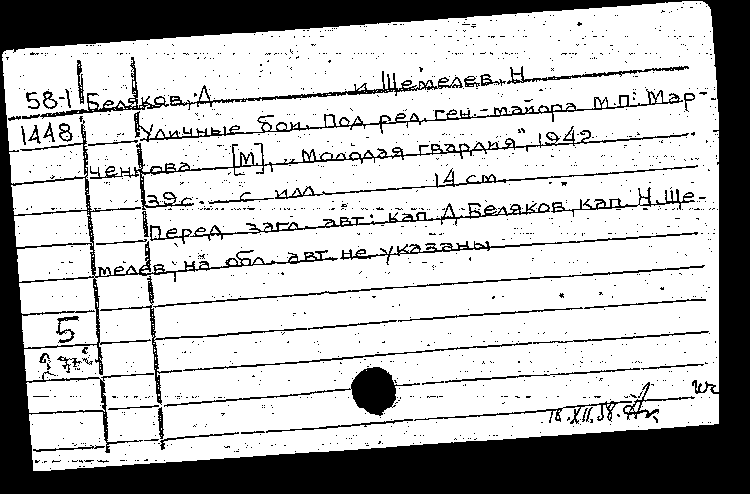 58-1 Беляков, Д и Щемелев, Н
1448 Уличные бои. Под ред. ген.-майора М.П. Мар-
ченкова [М], „Молодая гвардия", 1942
39с. с илл. 14 см.
Перед загл. авт: кап. Д. Беляков, кап. Н. Ще-
мелев; на обл. авт. не указаны
5
18.XII.58.